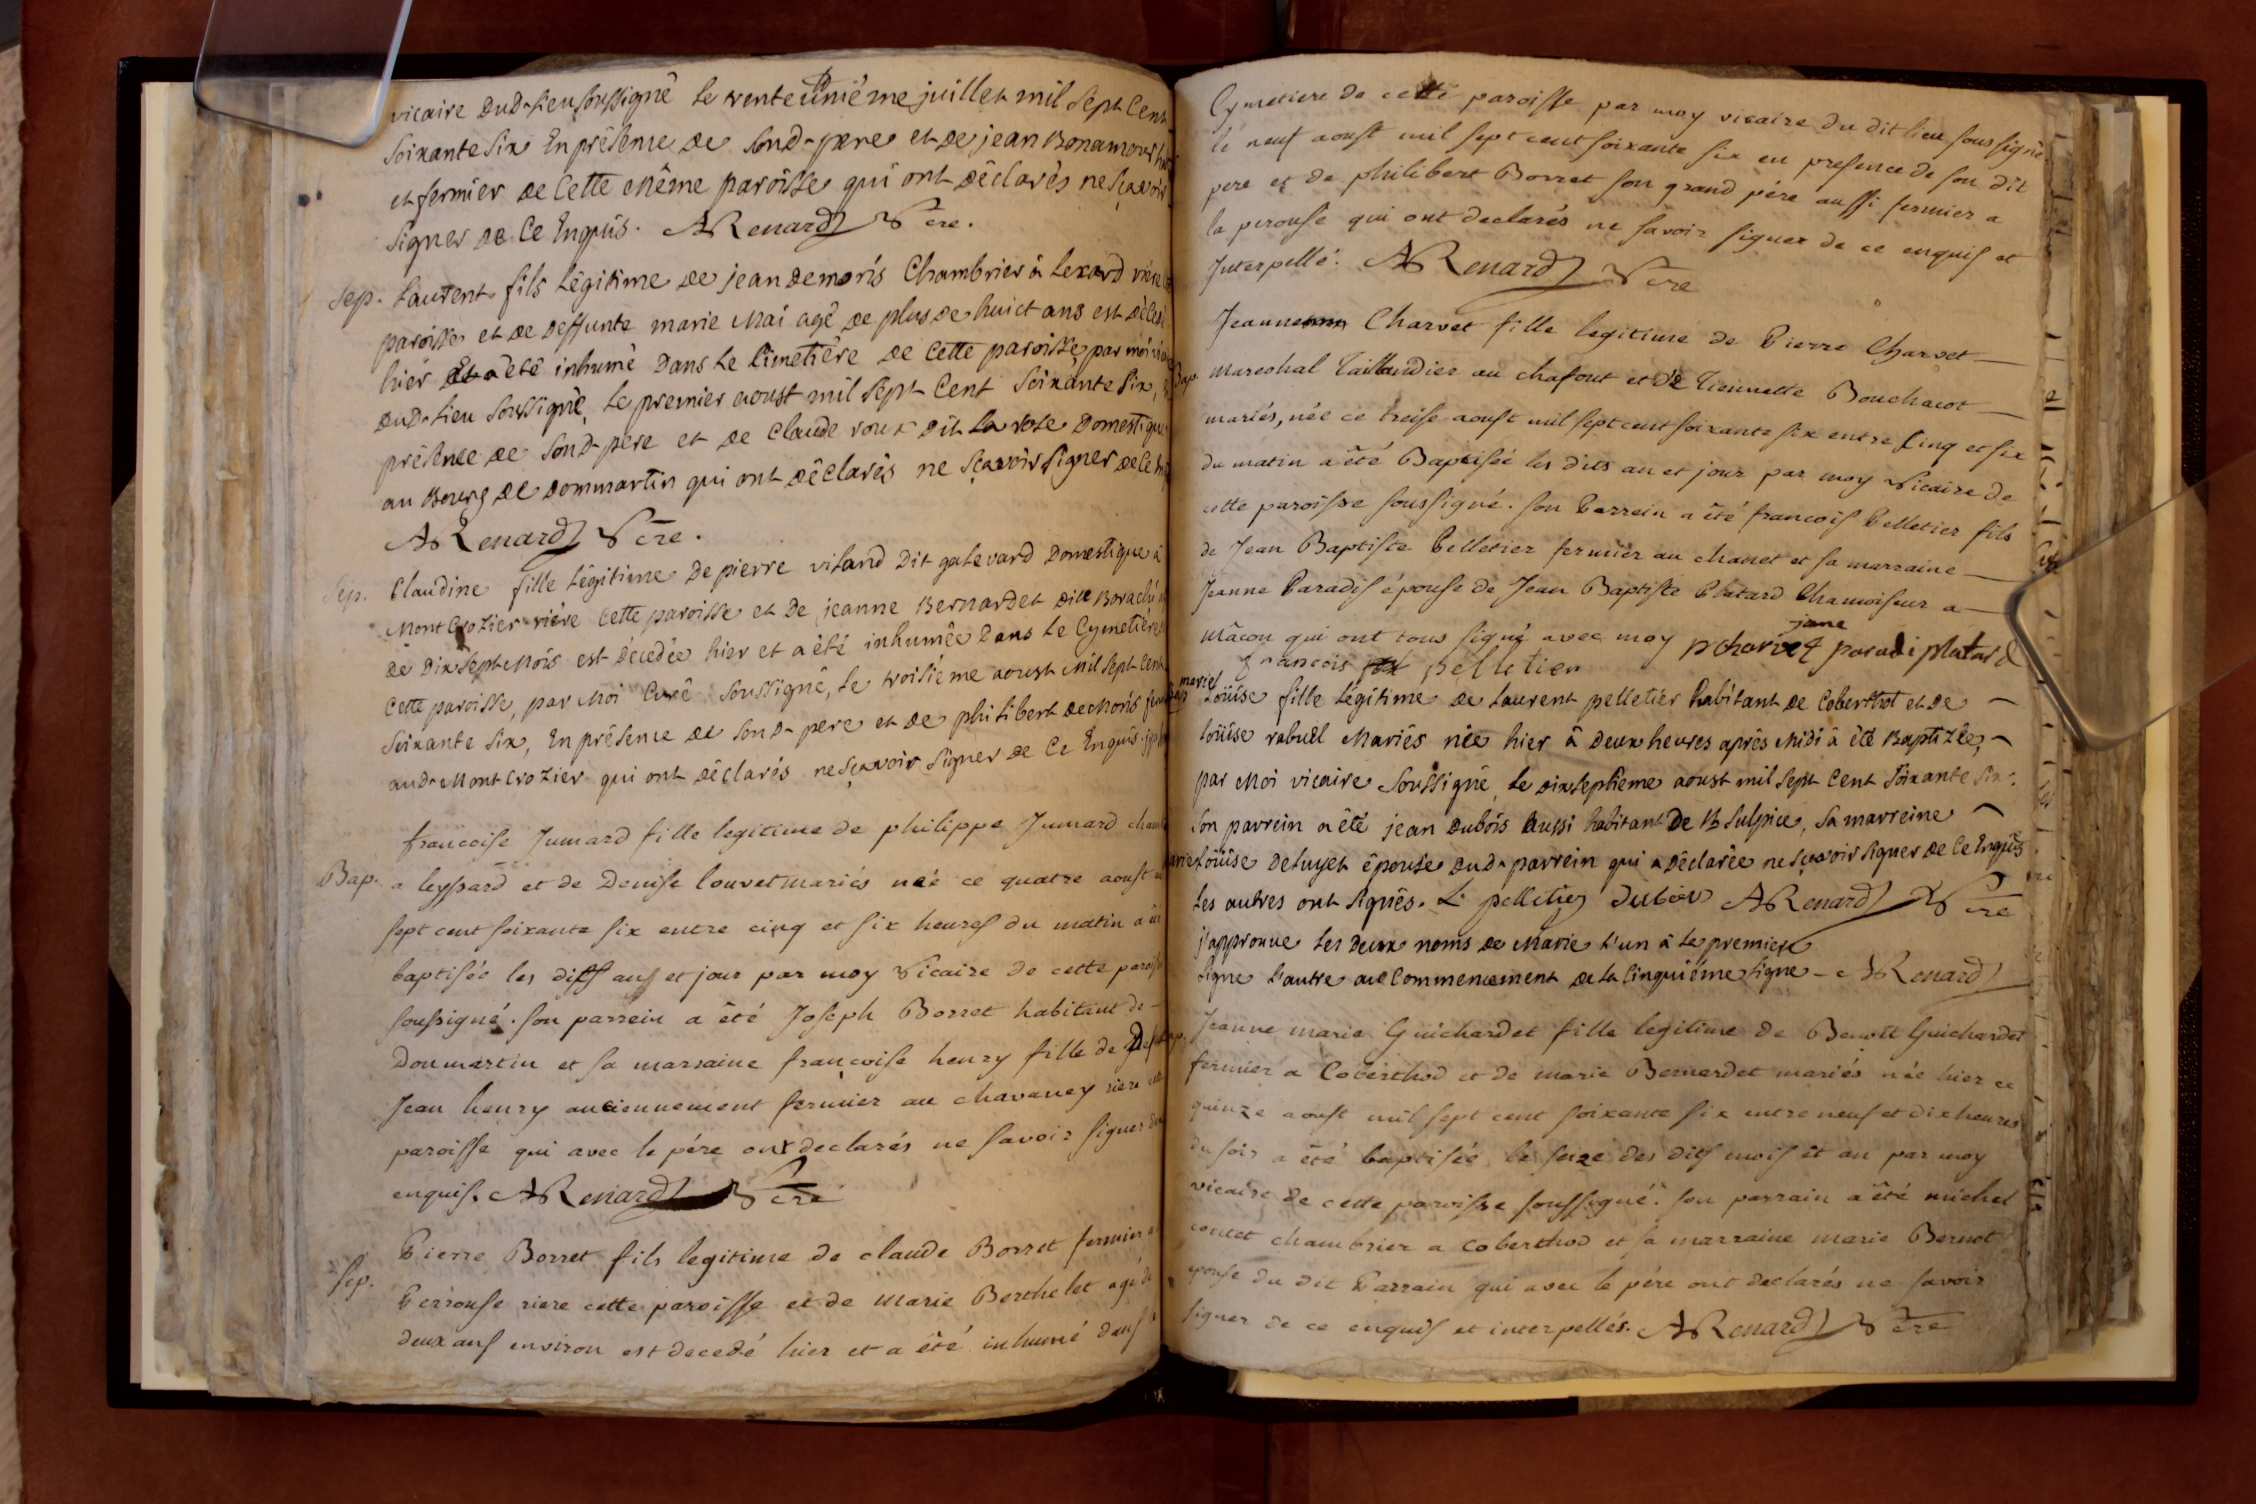 vicaire dud. lieu soussigné le trente unième juillet mil sept cent
soixante six en présence de sond. pere et de jean Bonamour
et fermier de cette même paroisse qui ont déclarés ne sçavoir
signer de ce enquis. A Renard vcre.
Sep. Laurent fils légitime de jean demoris Chambrier à Lexard rière
paroisse et de deffunte marie Mai agé de plus de huict ans est décédé
hier et a été inhumé dans le Cimetière de cette paroisse, par moi
dud. lieu soussigné, le premier aoust mil sept Cent soixante six,
présence de sond. père et de Claude roux dit La rose Domestique
au Bourg de dommartin qui ont déclarés ne sçavoir signer de ce
A Renard vcre.
Sep. Claudine fille légitime de pierre vitand dit galevard domestique à
Mont Crozier rière cette paroisse et de jeanne Bernardet dite
de dix sept mois est décédée hier et a été inhumée dans le Cymetière
cette paroisse, par Moi Curé soussigné, le troisième aoust mil sept Cent
soixante six, en présence de sond. père et de philibert demoris
aud. Mont Crozier qui ont déclarés ne sçavoir signer de ce enquis.
francoise Jumard fille legitime de philippe Jumard
Bap. a leyssard et de Denise louvet mariés née ce quatre aoust
sept cent soixante six entre cinq et six heures du matin a été
baptisée les dits ans et jour par moy Vicaire de cette paroisse
soussigné. son parrein a été Joseph Borret habitant de
Donmartin et sa marraine francoise henry fille de
Jean henry anciennement fermier au chavaney riere
paroisse qui avec le pére ont declarés ne savoir signer
enquis. A Renard vcre
Pierre Borret fils legitime de claude Borret fermier a
Sep. Perrouse riere cette paroisse et de Marie Berthelet agé de
deux ans environ est decedé hier et a été inhumé dans
Cymetiere de cette paroisse par moy vicaire du dit lieu soussigné
le neuf aoust mil sept cent soixante six en presence de son dit
pere et de philibert Borret son grand pére aussi fermier a
la perouse qui ont declarés ne savoir signer de ce enquis et
Interpellé. A Renard vcre
Jeanne Charvet fille legitime de Pierre Charvet
Bap. Marechal Taillandier au chafout et de Tiennette Bouchacot
mariés, née ce treise aoust mil sept cent soixante six entre cinq et six
du matin a été Baptisée les dits an et jour par moy Vicaire de
cette paroisse soussigné. son Parrein a été francois Pelletier fils
de Jean Baptiste Pelletier fermier au chanet et sa marraine
Jeanne Paradis épouse de Jean Baptiste Platard Chamoiseur a
Mâcon qui ont tous signé avec moy p charvet jane paradi platard
francois pelletier
marie Loüise fille légitime de Laurent pelletier habitant de Coberthot et de
loüise rabuël Mariés née hier à deux heures après Midi à été Baptizée,
par Moi vicaire soussigné, le dix septième aoust mil sept Cent soixante six.
son parrein a été jean dubois aussi habitant de St Sulpice, sa marreine
marie Loüise deluyet épouse dud. parrein qui a déclarée ne sçavoir signer de ce Enquis
les autres ont signés. L pelletier Dubois A Renard vcre
j'approuve les deux noms de Marie l'un à la premiere
ligne l'autre au Commencement de la Cinquième ligne - A Renard
Jeanne marie Guichardet fille legitime de Benoît Guichardet
fermier a Coberthod et de marie Bernardet mariés née hier ce
quinze aoust mil sept cent soixante six entre neuf et dix heures
du soir a été baptisée le seize des dits mois et an par moy
vicaire de cette paroisse soussigné. son parrain a été michel
contet chambrier a Coberthod et sa marraine marie Bernot
epouse du dit Parrain qui avec le pére ont declarés ne savoir
signer de ce enquis et interpellés. A Renard vcre